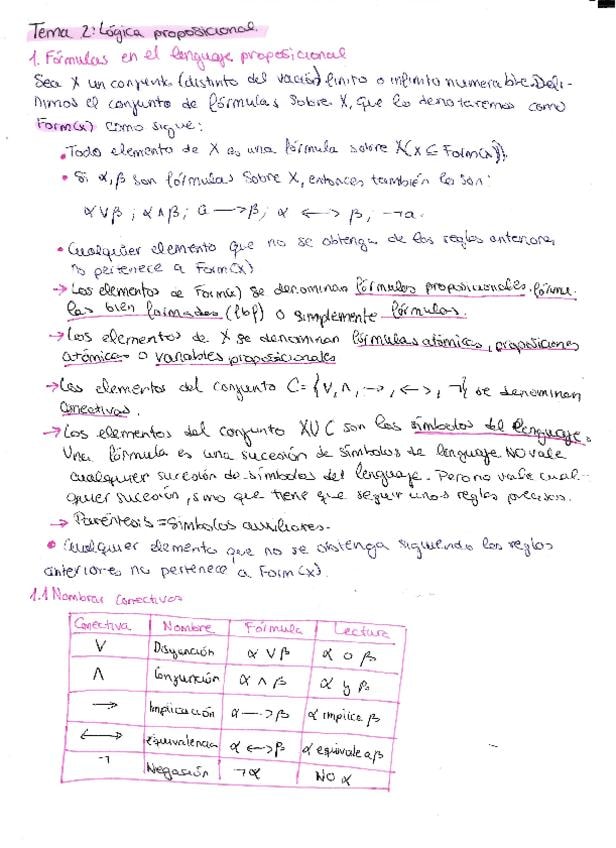 Tema 2: Lógica proposicional.
1. Fórmulas en el lenguaje proposicional
Sea X un conjunto (distinto del vacío) finito o infinito numerable. Defi-
nimos el conjunto de fórmulas sobre X, que lo denotaremos como
Form(x) como sigue:
• Todo elemento de X es una fórmula sobre X (X ⊆ Form(x)).
• Si α, β son fórmulas sobre X, entonces también lo son:
α ∨ β ; α ∧ β ; α —> β ; α <—> β ; ¬α.
• Cualquier elemento que no se obtenga de las reglas anteriores
no pertenece a Form(X)
→ Los elementos de Form(x) se denominan fórmulas proposicionales, fórmu-
las bien formadas (fbf) o simplemente fórmulas.
→ Los elementos de X se denominan fórmulas atómicas, proposiciones
atómicas o variables proposicionales
→ Los elementos del conjunto C = {∨, ∧, →, <—>, ¬} se denominan
conectivas.
→ Los elementos del conjunto X ∪ C son los símbolos del lenguaje.
Una fórmula es una sucesión de símbolos de lenguaje. NO vale
cualquier sucesión de símbolos del lenguaje. Pero no vale cual-
quier sucesión, sino que tiene que seguir unas reglas precisas.
→ Paréntesis = símbolos auxiliares.
• Cualquier elemento que no se obtenga siguiendo las reglas
anteriores no pertenece a Form(x).
1.1 Nombres conectivas
Conectiva Nombre Fórmula Lectura
∨ Disyunción α ∨ β α o β
∧ Conjunción α ∧ β α y β
→ Implicación α —> β α implica β
<—> equivalencia α <—> β α equivale a β
¬ Negación ¬α NO α